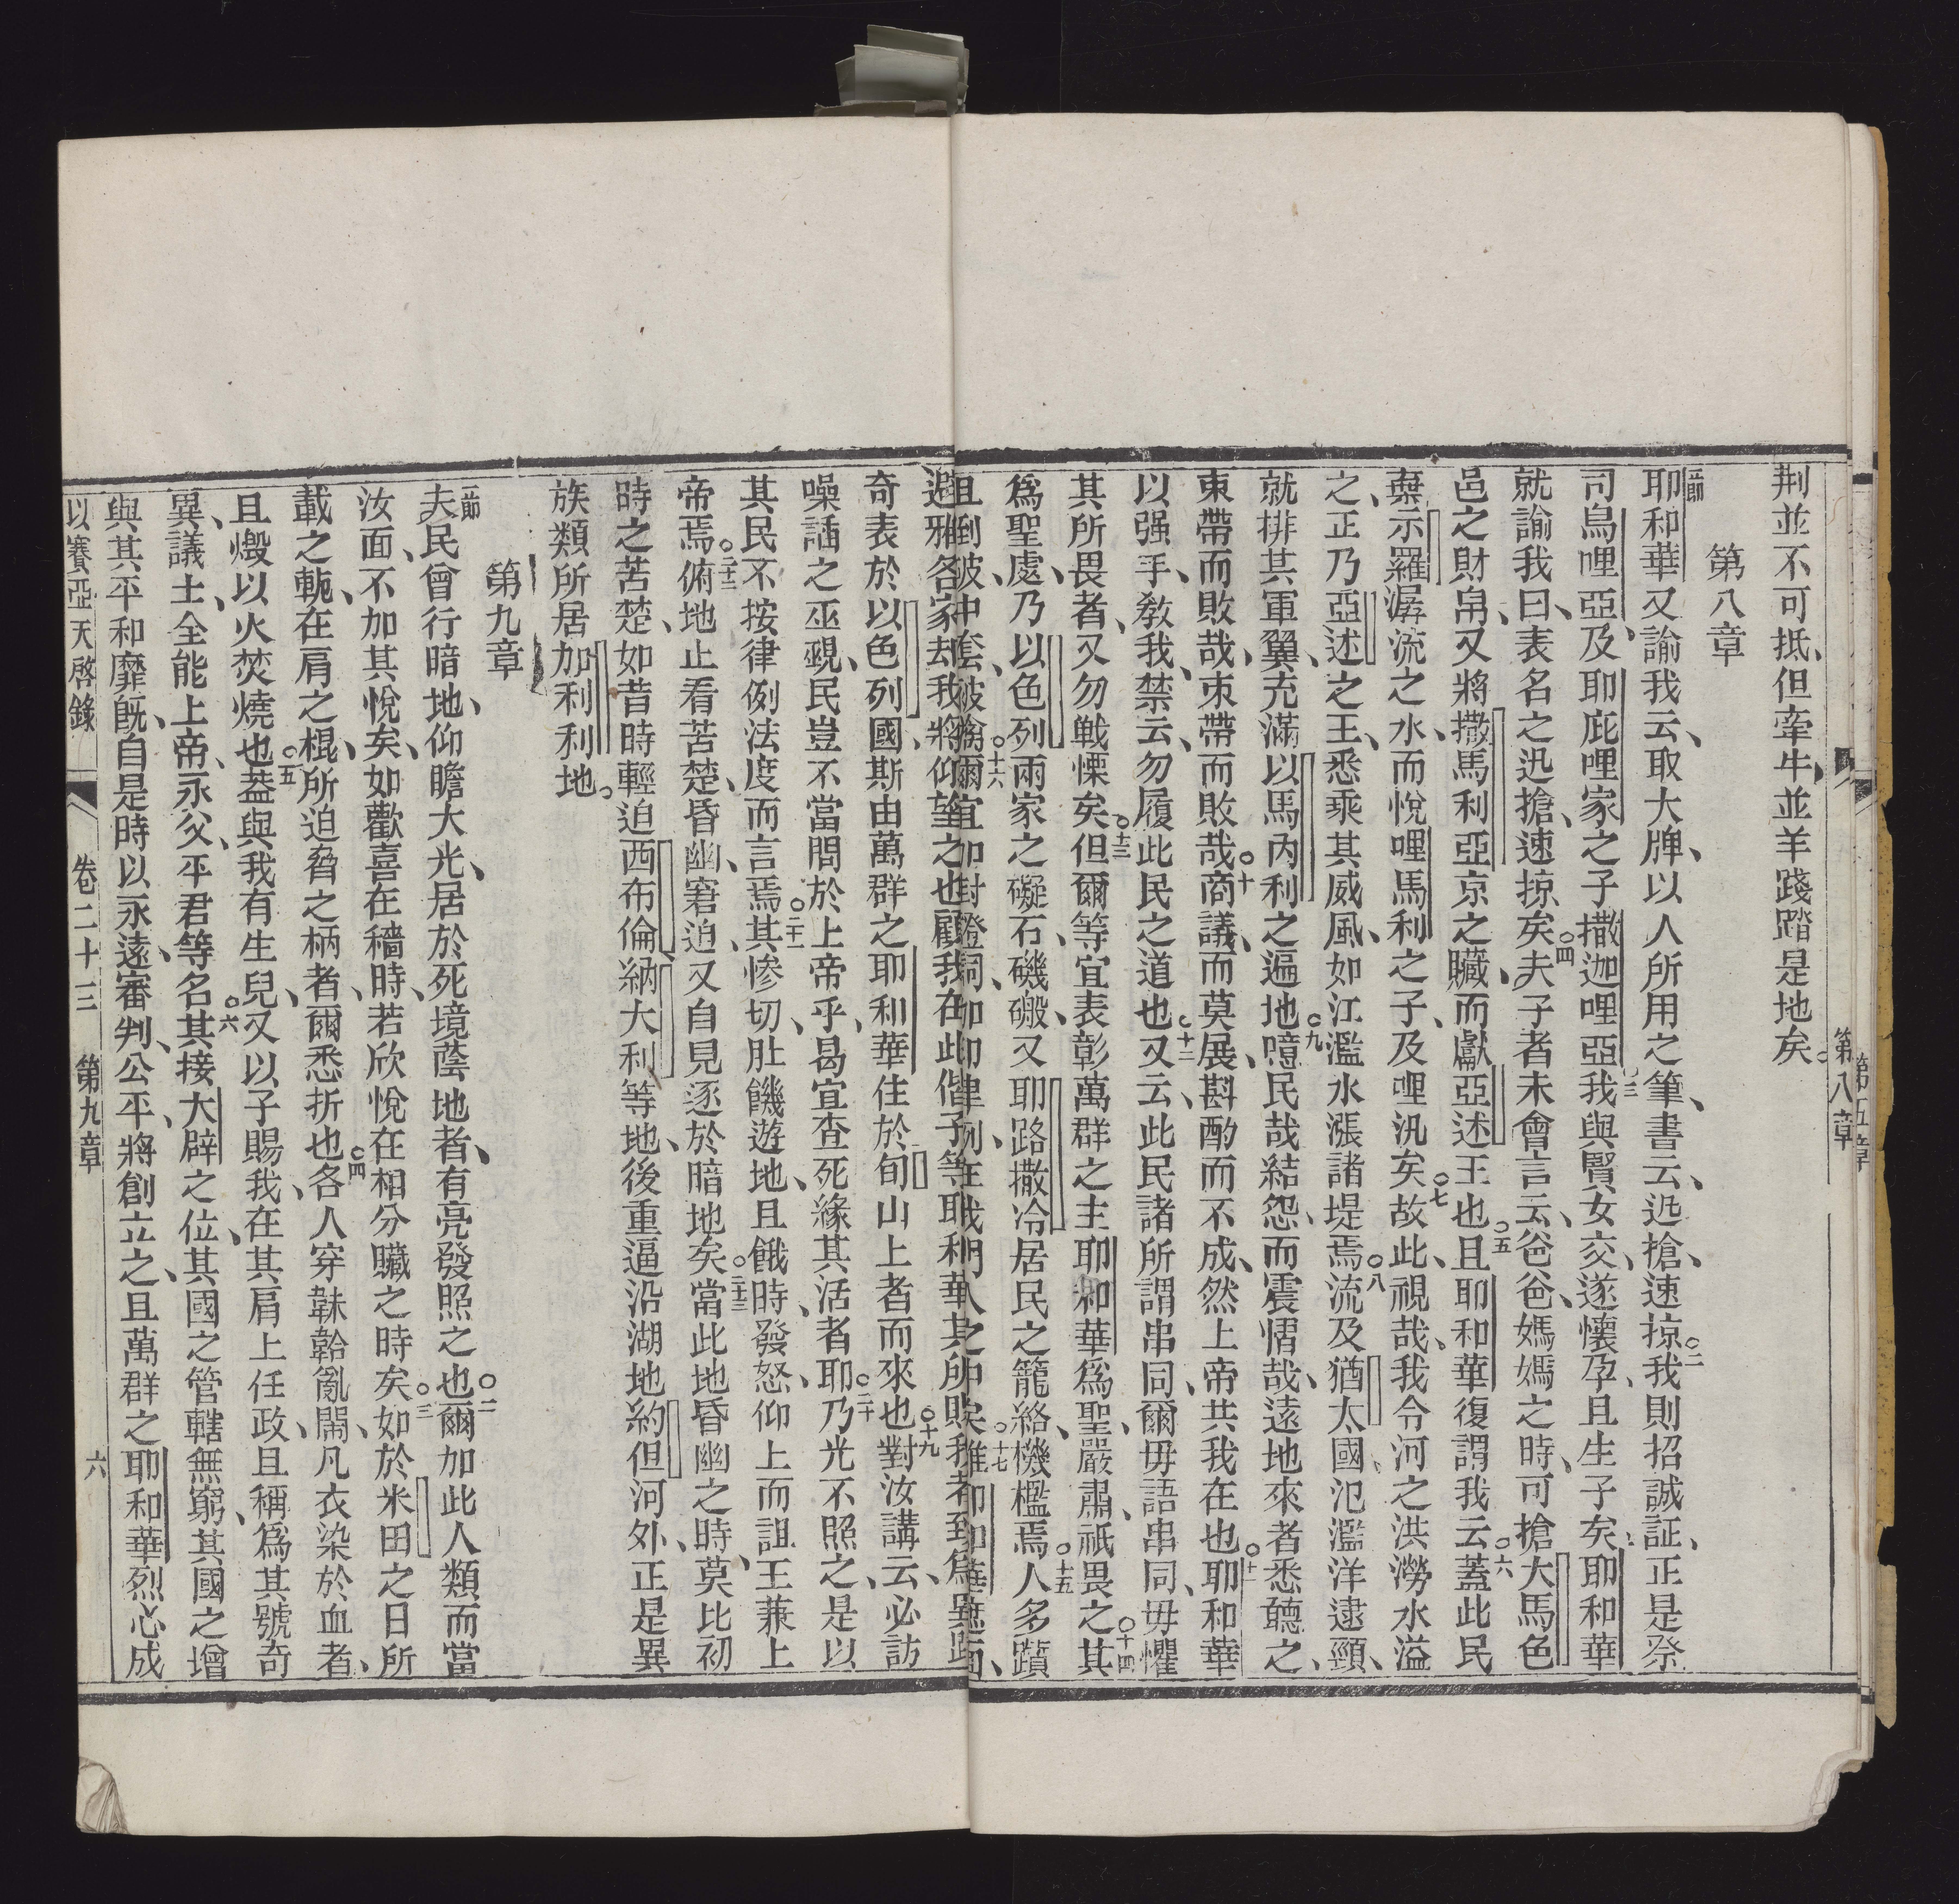 第八章
荆並不可抵、但牽牛並羊踐踏是地矣。
第八章
一節耶和華又諭我云、取大牌、以人所用之筆、書云、迅搶、速掠、○二我則招誠証、正是祭
司烏哩亞、及耶庇哩家之子撒迦哩亞、○三我與賢女交、遂懷孕、且生子矣、耶和華
就諭我、曰、表名之迅搶、速掠矣、○四夫子者未會言云、爸爸、媽媽之時、可搶大馬色
邑之財帛、又將撒馬利亞京之贓、而獻亞述王也、○五且耶和華復謂我云、○六蓋此民
棄示羅潺流之水、而悅哩馬利之子、及哩汛矣、○七故此、視哉、我令河之洪澇水溢
之、正乃亞述之王、悉乘其威風、如江濫水漲諸堤焉、○八流及猶太國、氾濫洋逮頸、
就排其軍翼、充滿以馬內利之遍地、○九噫民哉、結怨、而震慴哉、遠地來者悉聽之、
束帶而敗哉、束帶而敗哉、○十商議、而莫展、斟酌而不成、然上帝共我在也、○十一耶和華
以强手、教我、禁云、勿履此民之道也、○十二又云、此民諸所謂串同、爾毋語串同、毋懼
其所畏者、又勿戰慄矣、○十三但爾等宜表彰萬群之主耶和華爲聖、嚴肅、祇畏之、○十四其
爲聖處、乃以色列兩家之礙石、磯磤、又耶路撒冷居民之籠絡、機檻焉、○十五人多躓
且倒破、中套、被擒、○十六爾宜
雅各家、却我將仰望之也、顧我在此、偕子等、耶和華
奇表於以色列國、斯由萬群之耶和華住於旬山上者而來也、○十九對汝講云、必訪
噪諙之巫覡、民豈不當問於上帝乎、曷宜查死緣其活者、○二十耶乃光不照之、是以
其民不按律例法度而言焉、○二十一其慘切肚饑遊地、且餓時、發怒、仰上而詛王兼上
帝焉、○二十二俯地止看苦楚、昏幽、窘迫、又自見逐於暗地矣、○二十三當此地昏幽之時、莫比初
時之苦楚、如昔時輕迫西布倫納大利等地、後重逼沿湖地約但河外、正是異
族類所居加利利地。
第九章
一節夫民曾行暗地、仰瞻大光、居於死境蔭地者、有亮發照之也、○二爾加此人類而當
汝面、不加其悅矣、如歡喜在穡時、若欣悅在相分贓之時矣、○三如於米田之日、所
載之軛、在肩之棍、所迫脅之柄者、爾悉折也、○四各人穿韎韐亂鬧、凡衣染於血者、
且燬以火焚燒也、○五蓋與我有生兒、又以子賜我、在其肩上任政、且稱爲其號奇
異、議士、全能上帝、永父、平君等名、○六其接大辟之位、其國之管轄無窮、其國之增
與其平和靡旣、自是時以永遠審判、公平、將創立之、且萬群之耶和華烈心成
以賽亞天啓錄 卷二十三 第九章 六